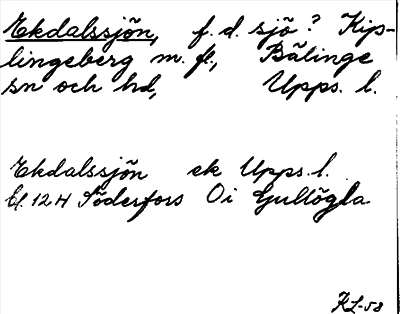 Ekdalssjön, f. d. sjö? Kip-
lingeberg m. fl., Bälinge
sn och hd, Upps. l.
Ekdalssjön ek Upps. l.
bl. 12 H Söderfors 0i Gullögla
KL-58